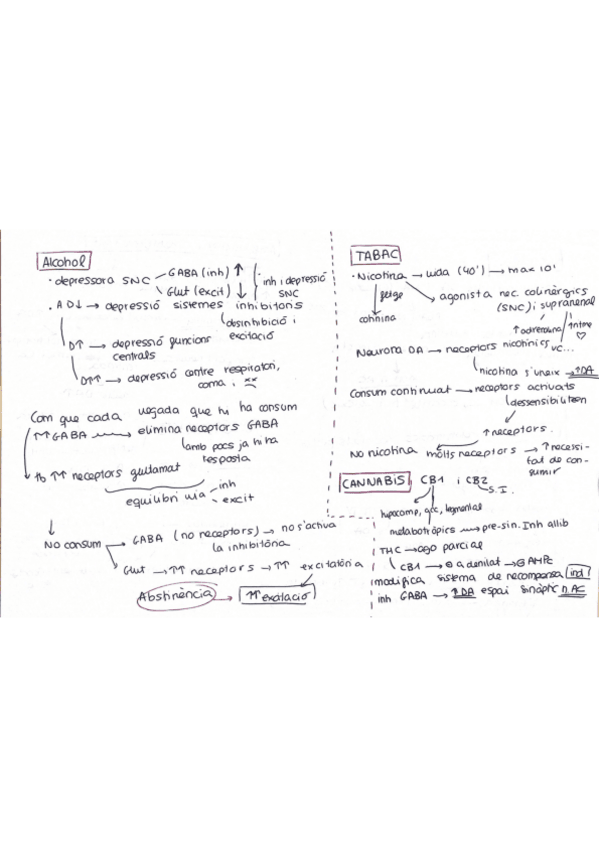 Alcohol
· depressora SNC GABA (inh) ↑
Glut (excit) ↓
· inh i depressió
SNC
· A D↓ → depressió sistemes inhibitoris
desinhibició i
excitació
D↑ → depressió funcions
centrals
D↑↑ → depressió centre respiratori,
coma i xx
Com que cada vegada que hi ha consum
↑↑GABA → elimina receptors GABA
amb pocs ja hi ha
resposta
tb ↑↑ receptors glutamat
equilibri via inh
excit
No consum → GABA (no receptors) → no s'activa
la inhibitòria
Glut → ↑↑ receptors → ↑↑ excitatòria
Abstinència → ↑↑ excitació
TABAC
· Nicotina → vida (40') → max 10'
fetge
cotinina
agonista rec. colinèrgics
(SNC) i suprarenal
↑ adrenalina
↑ritme ♡
VC...
Neurona DA → receptors nicotínics
nicotina s'uneix → ↑DA
Consum continuat → receptors activats
dessensibilitzen
↑ receptors.
No nicotina molts receptors → ↑ necessi-
tat de con-
sumir
CANNABIS CB1 i CB2
S.I.
hipocamp,
metabotròpics → pre-sin. Inh allib
THC → ago parcial
CB1 → ⊖ adenilat → ⊖ AMPc
modifica sistema de recompensa ind!
inh GABA → ↑DA espai sinàptic n.AC